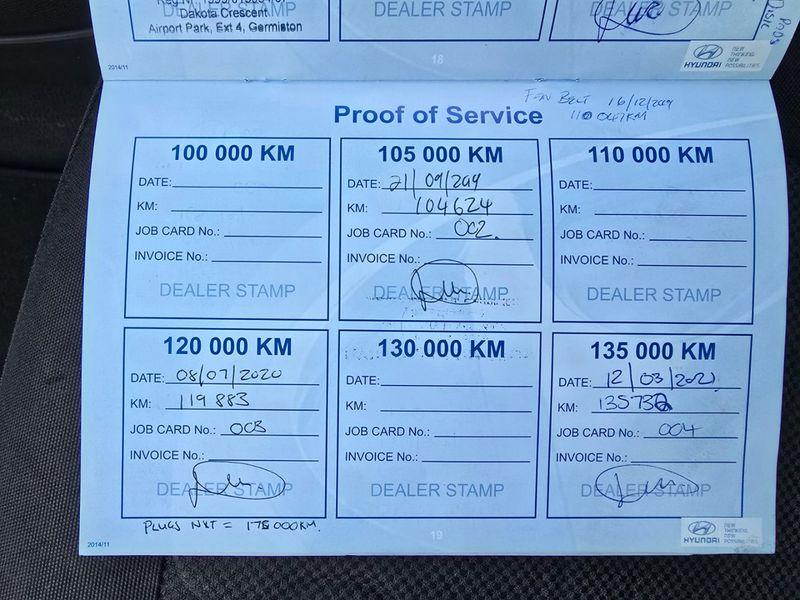 Dakota Crescent
Airport Park, Ext 4, Germiston
DEALER STAMP
DEALER STAMP
DEALER STAMP
2014/11
18
HYUNDAI
NEW
THINKING.
NEW
POSSIBILITIES.
FAN BELT 16/12/2019
110 047KM
Proof of Service
100 000 KM
DATE:
KM:
JOB CARD No.:
INVOICE No.:
DEALER STAMP
105 000 KM
DATE: 21/09/2019
KM: 104624
JOB CARD No.: 002.
INVOICE No.:
DEALER STAMP
110 000 KM
DATE:
KM:
JOB CARD No.:
INVOICE No.:
DEALER STAMP
120 000 KM
DATE: 08/07/2020
KM: 119 883
JOB CARD No.: 003
INVOICE No.:
DEALER STAMP
130 000 KM
DATE:
KM:
JOB CARD No.:
INVOICE No.:
DEALER STAMP
135 000 KM
DATE: 12/03/2021
KM: 135732
JOB CARD No.: 004
INVOICE No.:
DEALER STAMP
PLUGS NXT = 175 000KM.
2014/11
19
HYUNDAI
NEW
THINKING.
NEW
POSSIBILITIES.